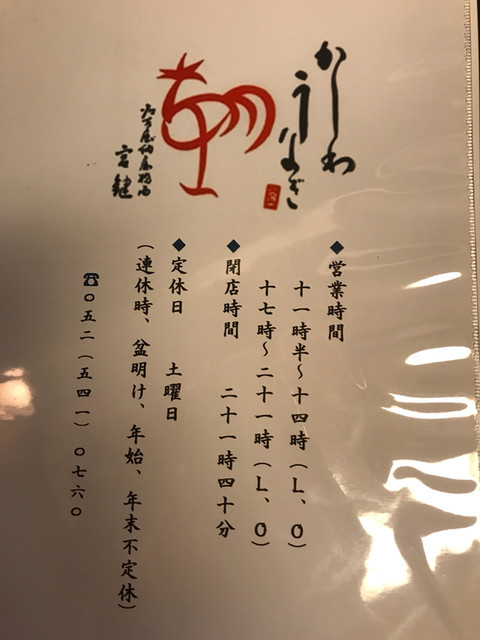 かしわ
うなぎ
宮鍵
◆営業時間
十一時半～十四時（L、O）
十七時～二十一時（L、O）
◆閉店時間 二十一時四十分
◆定休日 土曜日
（連休時、盆明け、年始、年末不定休）
☎〇五二（五四一）〇七六〇